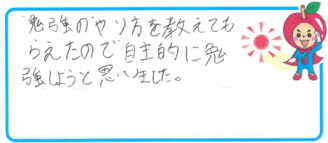 勉強のやり方を教えても
らえたので自主的に勉
強しようと思いました。